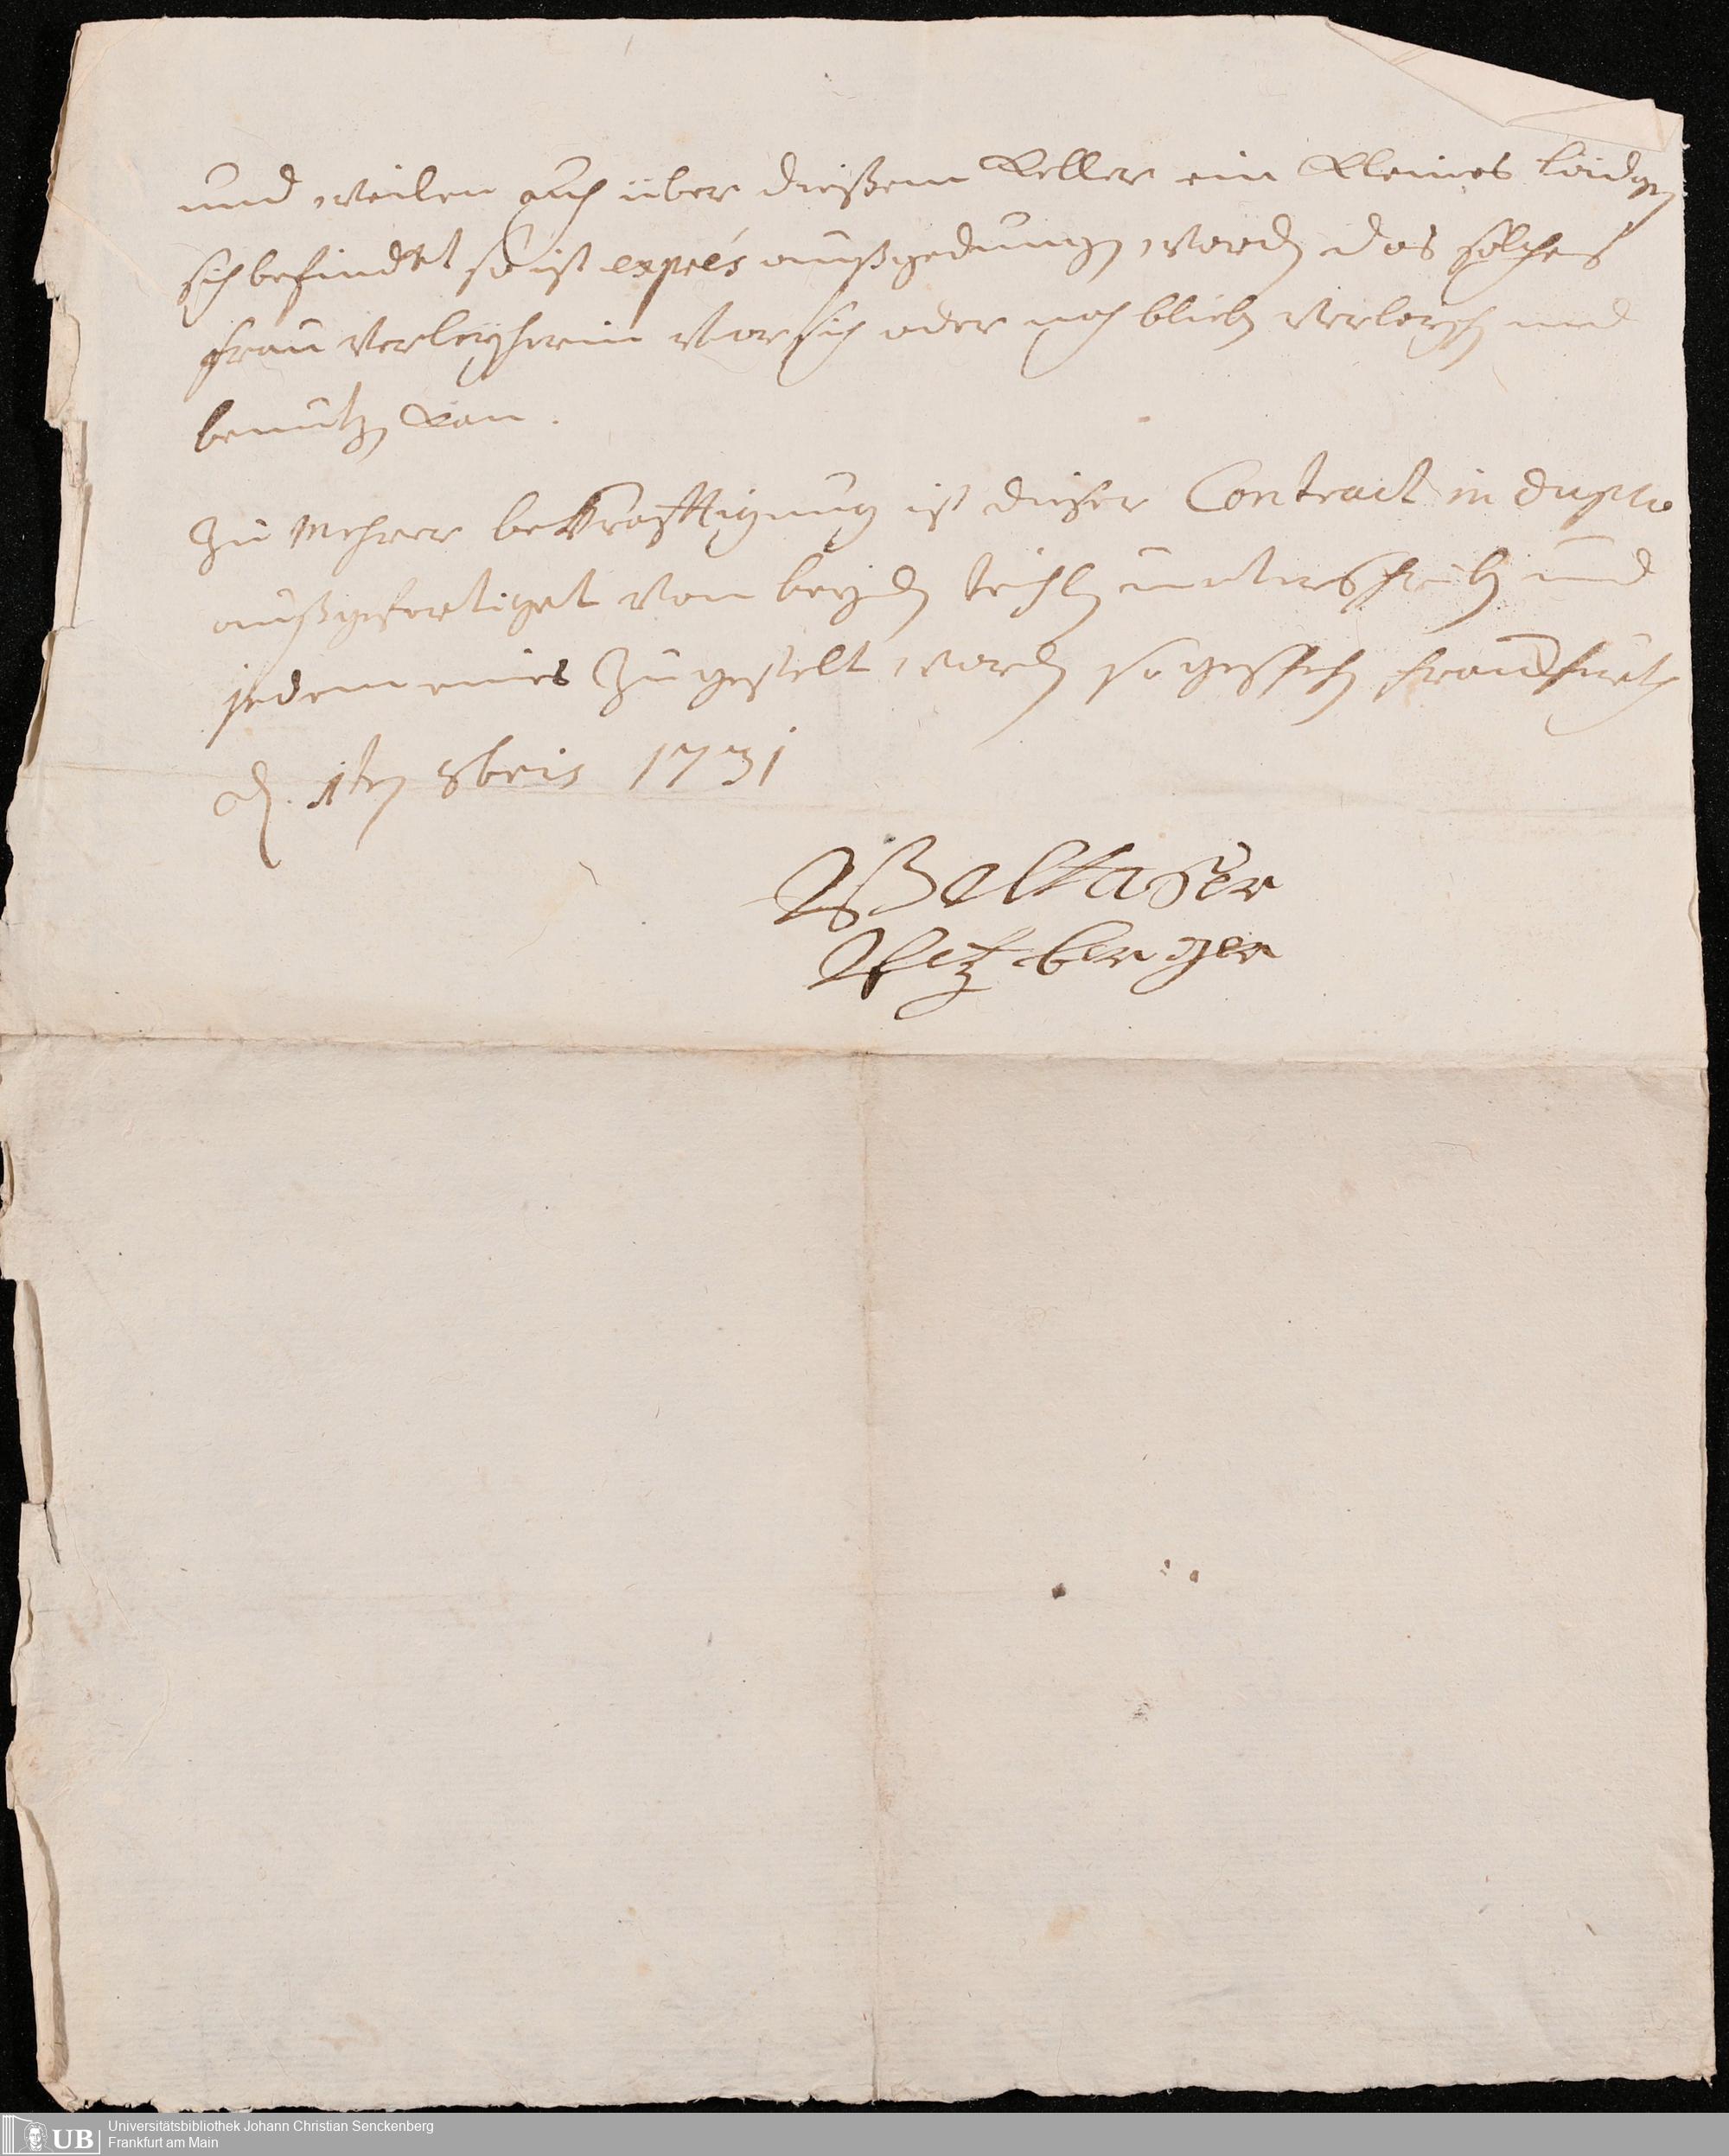 und weilen auch über dießem Keller ein Kleines lädgen
sich befindtet so ist exprés außgedungen worden das solches
frau Verleyherin vor sich oder nach blieben verleyhen und
benutzen kan.
Zu Mehrer beKrafftigung ist dießer Contract in duplo
außgefertiget von beyden teihlen unterschrieben und
jedem eines Zugestelt worden so geschehen franckfurth
d. 1ten 8bris 1731
Baltaser
Netzberger
Universitätsbibliothek Johann Christian Senckenberg
UB Frankfurt am Main